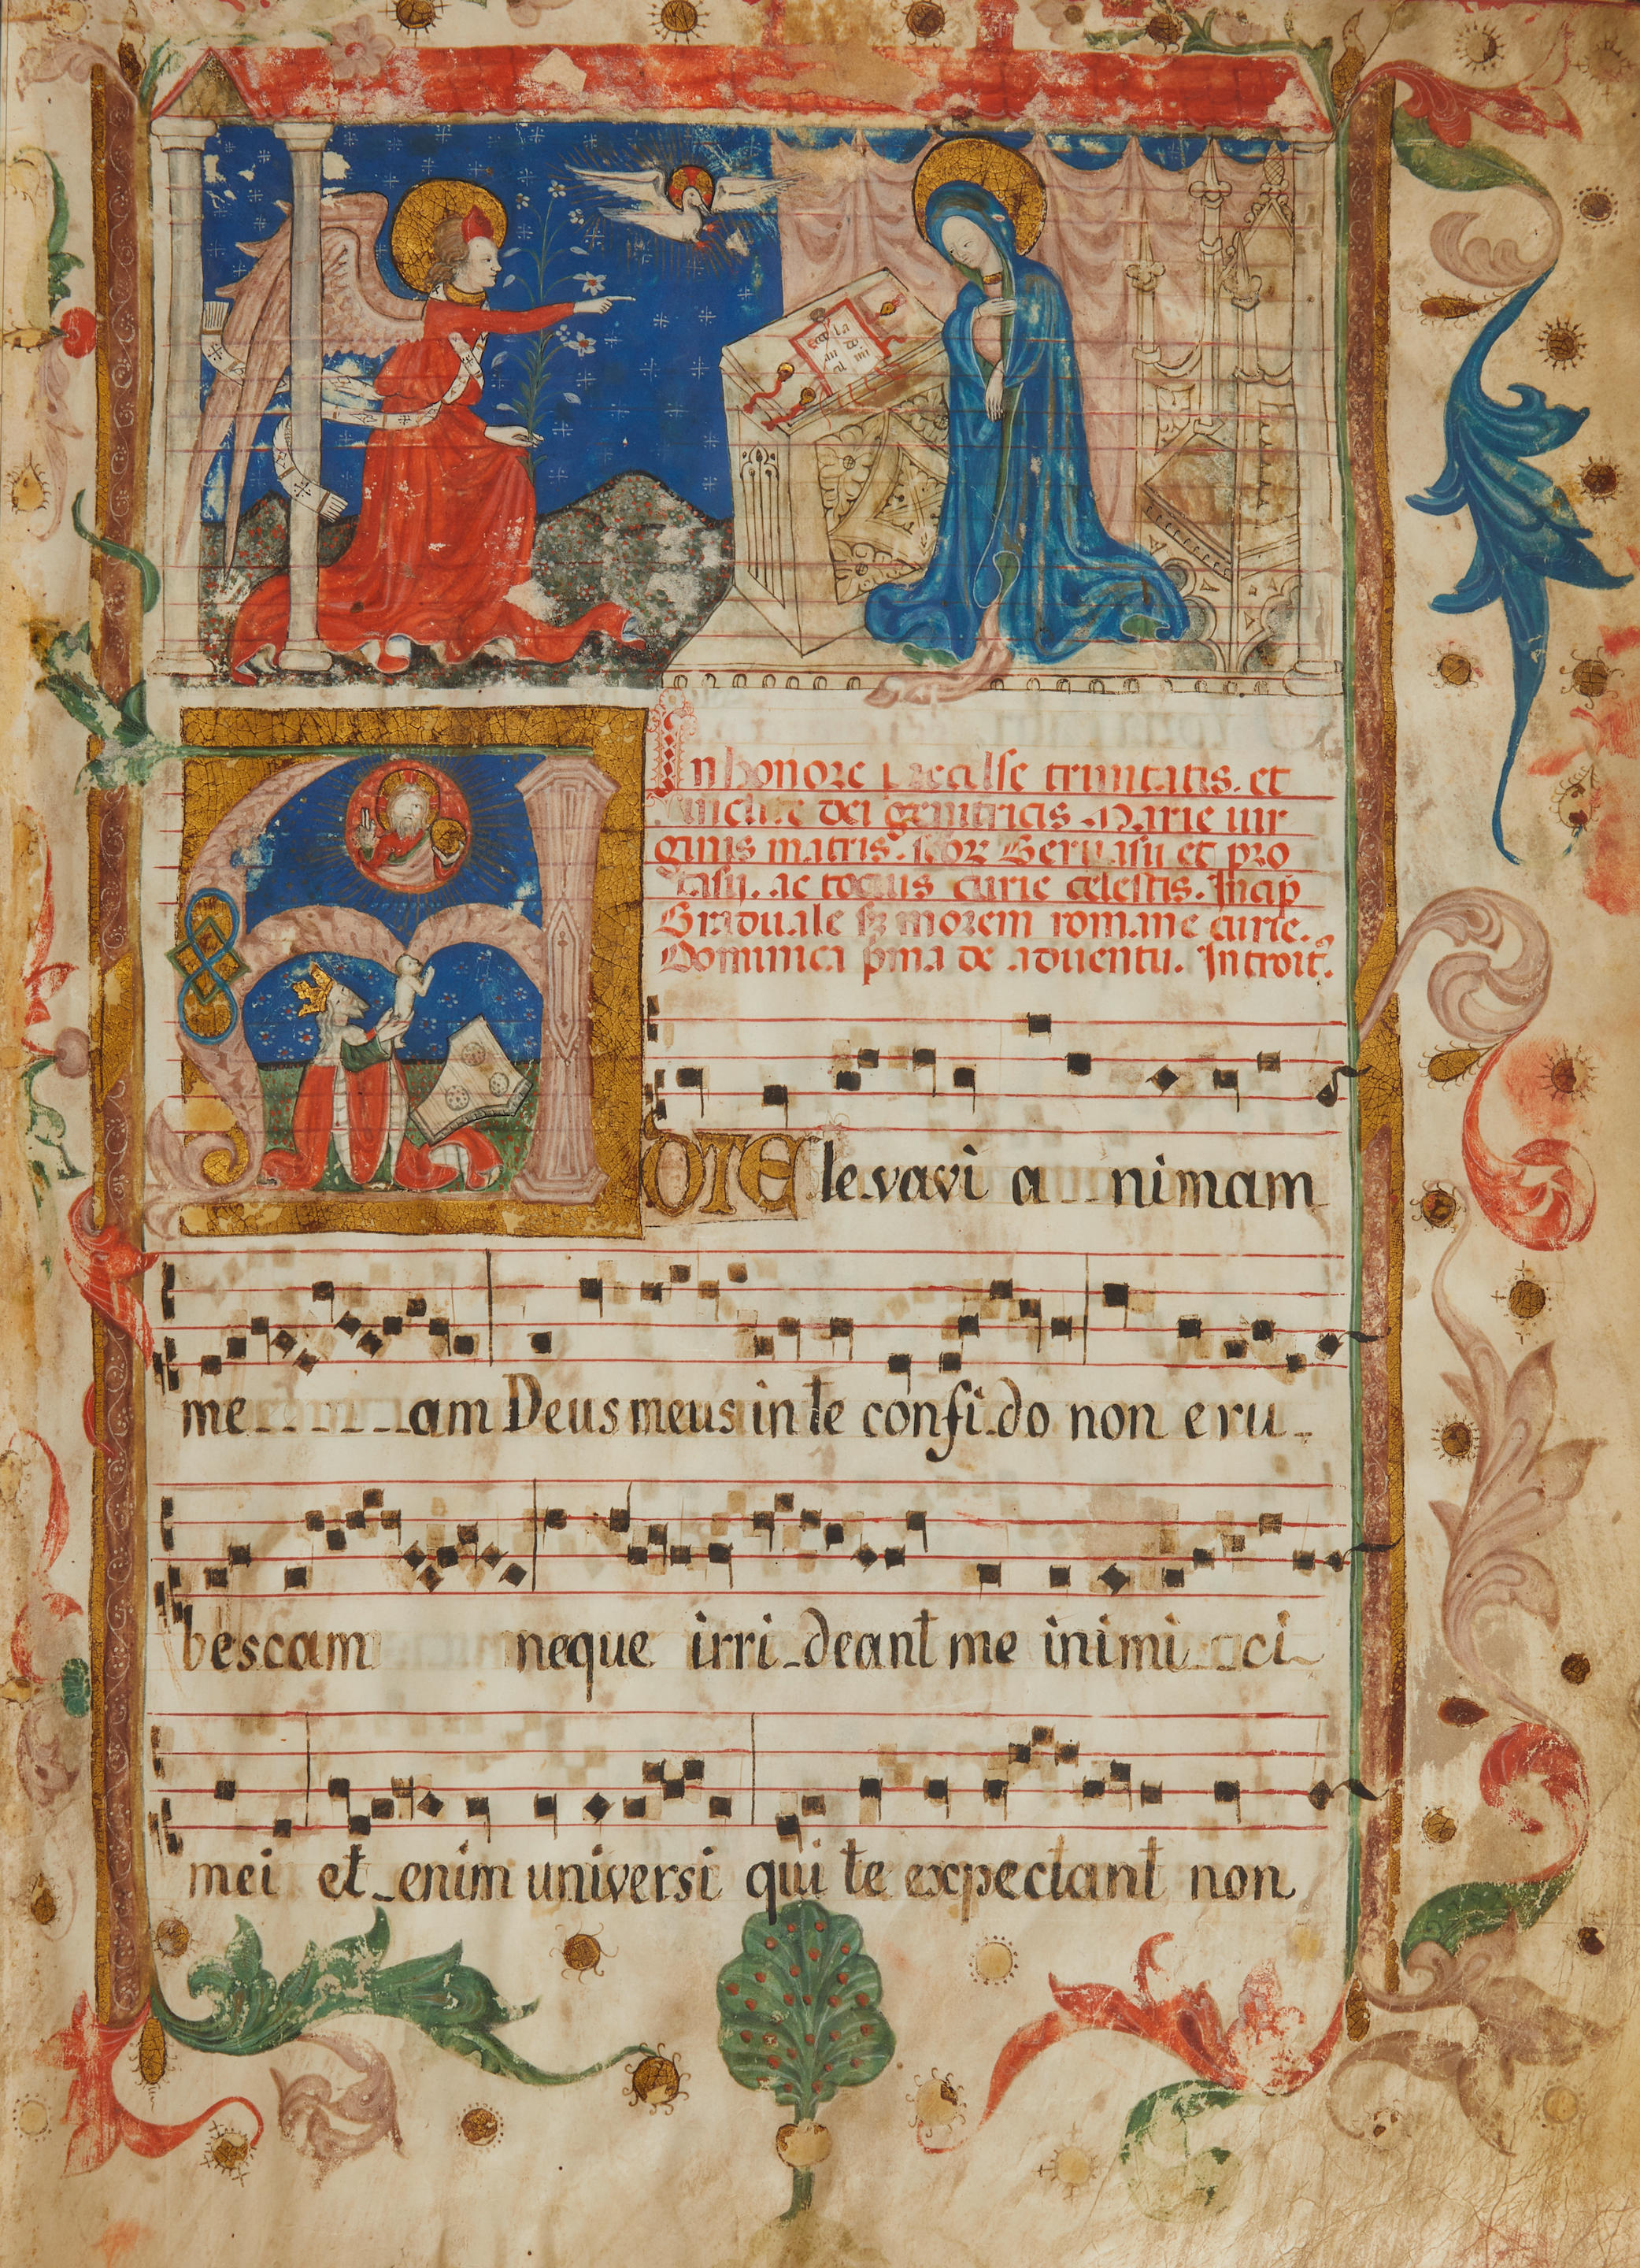 ecce la
In honore precelse trinitatis. et
inclite dei genitricis Marie uir
ginis matris. scorz Geruasii et pro
tasij. ac tocius curie celestis. Incip
Graduale sz morem romane curie.
Dominica pma de aduentu. Introit9.
A
DTE le_vavi a_nimam
me_____am Deus meus in te confi_do non eru_
bescam neque irri_deant me inimi_ci_
mei et_enim universi qui te expectant non